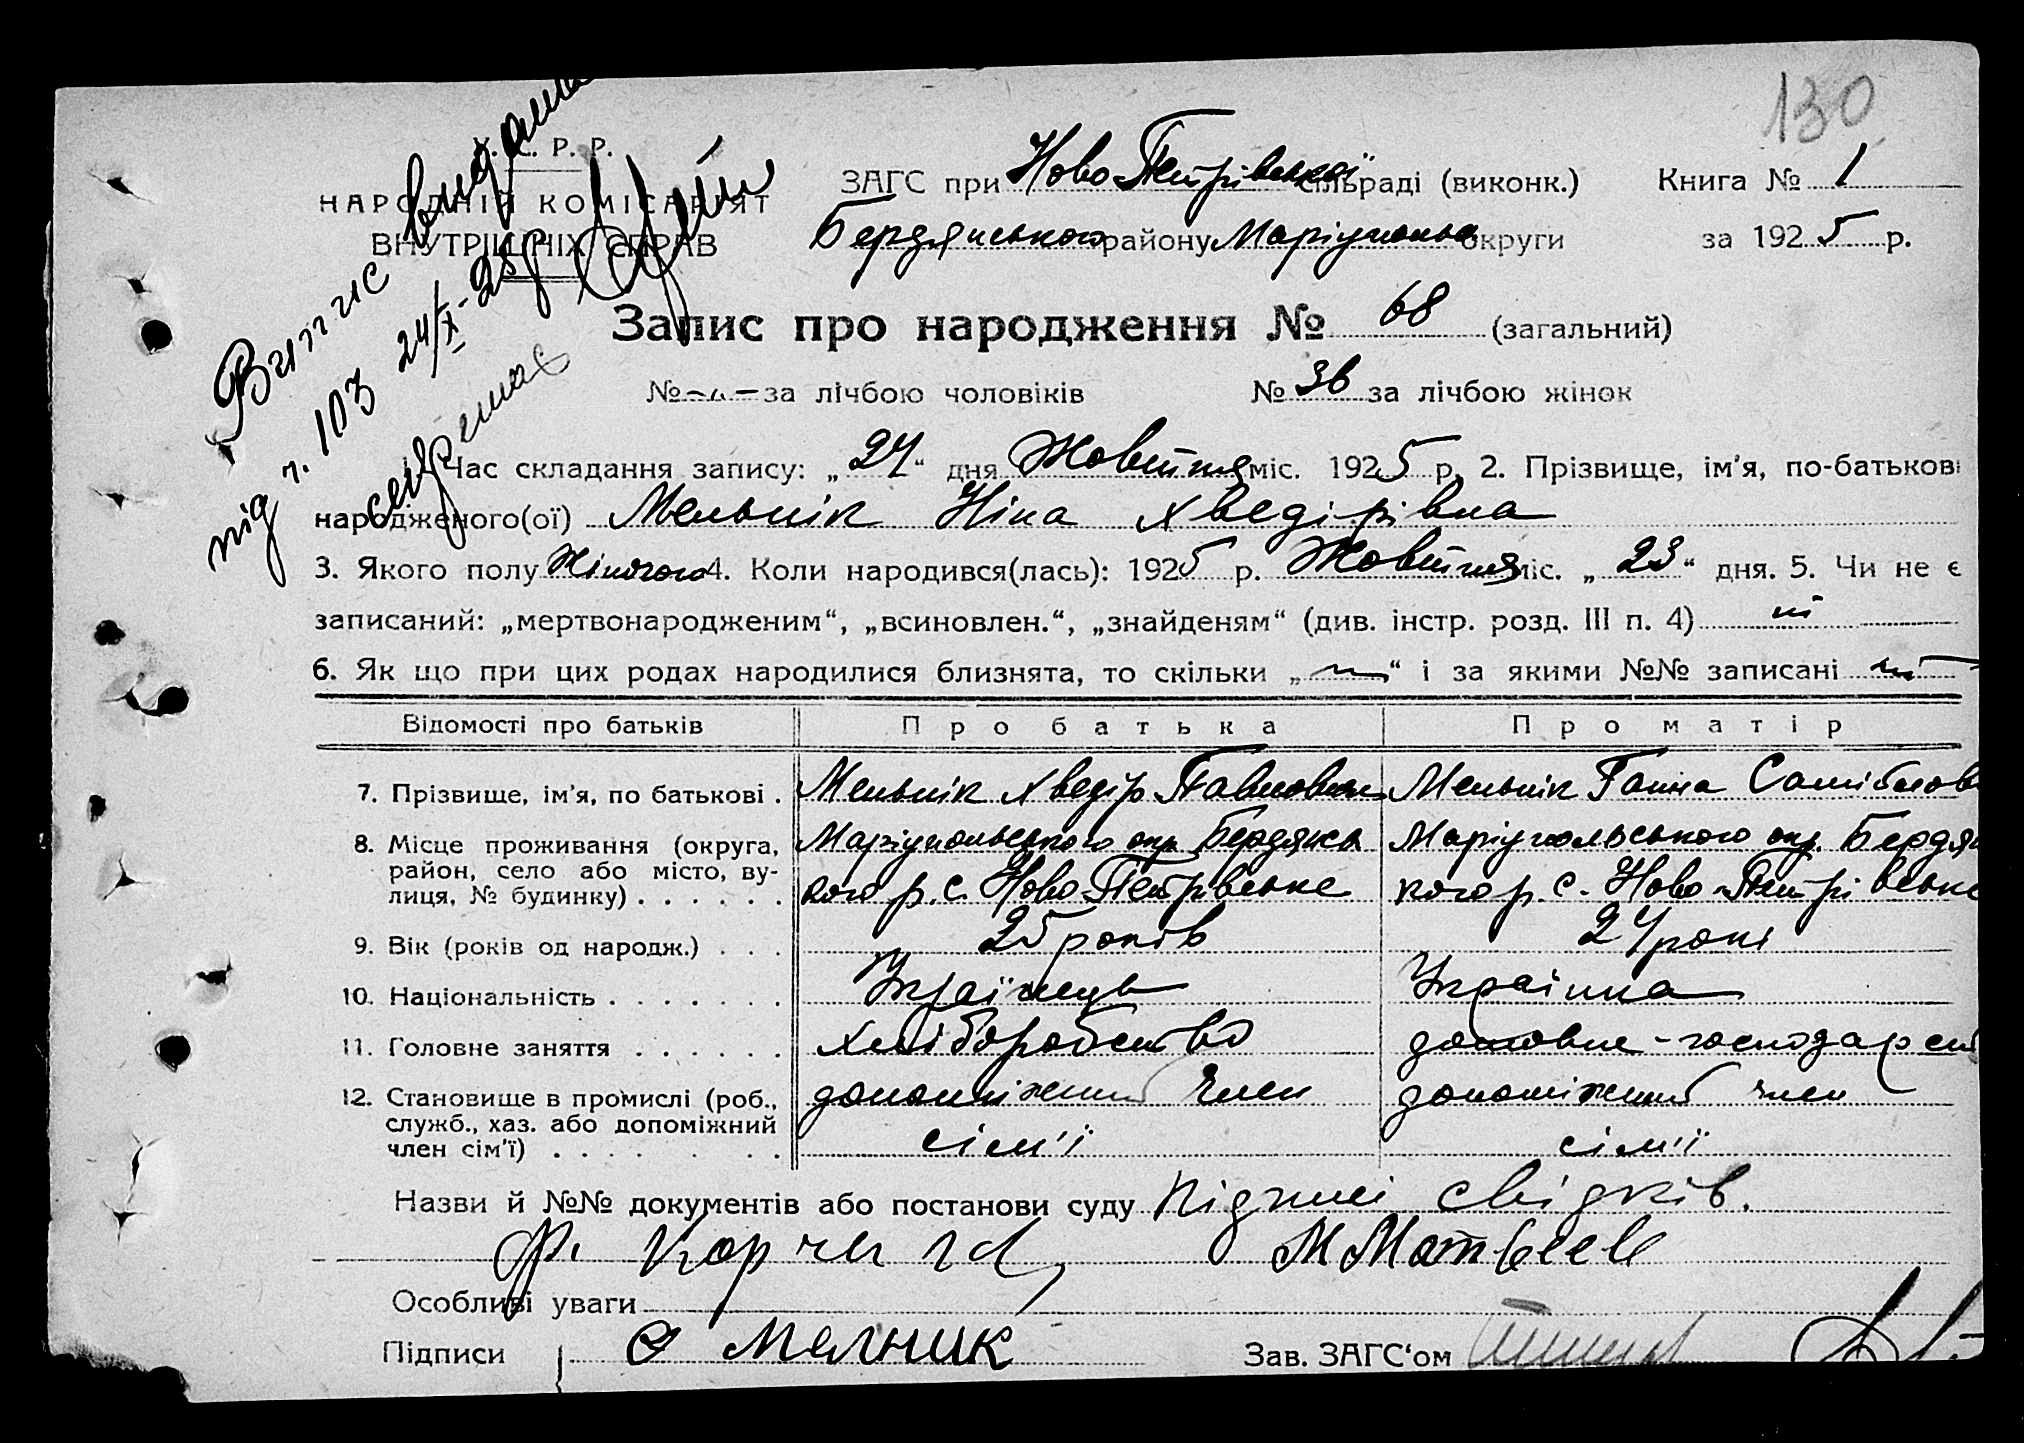 130
У. С. Р. Р.
НАРОДНІЙ КОМІСАРІЯТ
ВНУТРІШНІХ СПРАВ
Витяг видано
під ч. 103 24/X-25р
ЗАГС при Ново-Петрівській сільраді (виконк.) Книга № 1
Бердянського району Маріупольс округи за 1925 р.
Запис про народження № 68 (загальний)
№ — за лічбою чоловіків № 36 за лічбою жінок
Час складання запису: „24“ дня Жовтня міс. 1925 р. 2. Прізвище, ім'я, по-батькові
народженого(ої) Мельнік Ніна Хведірівна
3. Якого полу Жіночого 4. Коли народився(лась): 1925 р. Жовтня міс. „23“ дня. 5. Чи не є
записаний: „мертвонародженим“, „всиновлен.“, „знайденям“ (див. інстр. розд. III п. 4) ні
6. Як що при цих родах народилися близнята, то скільки „—“ і за якими №№ записані ні
Відомості про батьків Про батька Про матір
7. Прізвище, ім'я, по батькові . Мельнік Хведір Павлович Мельнік Ганна
8. Місце проживання (округа, Маріупольського окр. Бердянсь Маріупольського окр. Бердян
район, село або місто, ву- кого р. с. Ново-Петрівське кого р. с. Ново-Петрівське
лиця, № будинку) . . . . . .
9. Вік (років од народж.) . . . 25 років 24 роки
10. Національність . . . . . . . Українець Українка
11. Головне заняття . . . . . . хліборобство домовне-господарст
12. Становище в промислі (роб., допоміжний член допоміжний член
служб., хаз. або допоміжний сім'ї сім'ї
член сім'ї) . . . . . . .
Назви й №№ документів або постанови суду Підписі свідків.
М Матвеев
Особливі уваги
Підписи Ѳ Мелник Зав. ЗАГС'ом